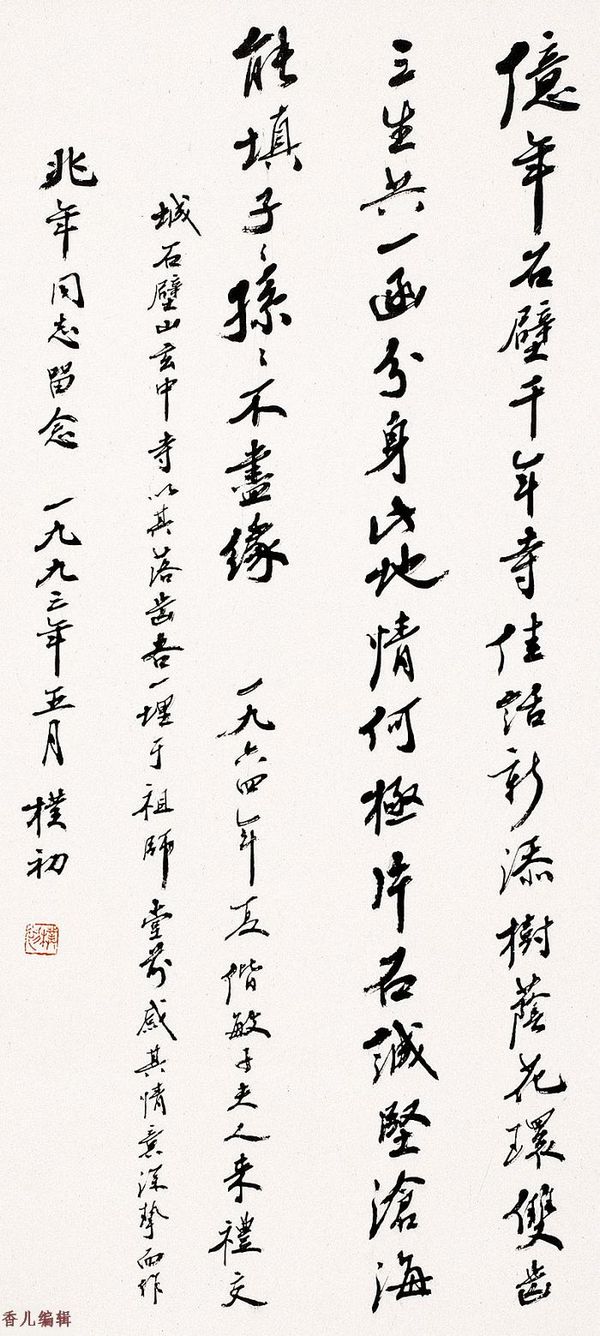 億年石壁千年寺佳話新添樹蔭花環雙齒
三生共一函分身此地情何極片石誠堅滄海
能填子〻孫〻不盡緣
一九六四年夏偕敏子夫人来禮交
城石壁山玄中寺以其落齒各一埋于祖師堂前感其情意深摯而作
兆年同志留念 一九九三年五月 樸初
樸初
香儿编辑